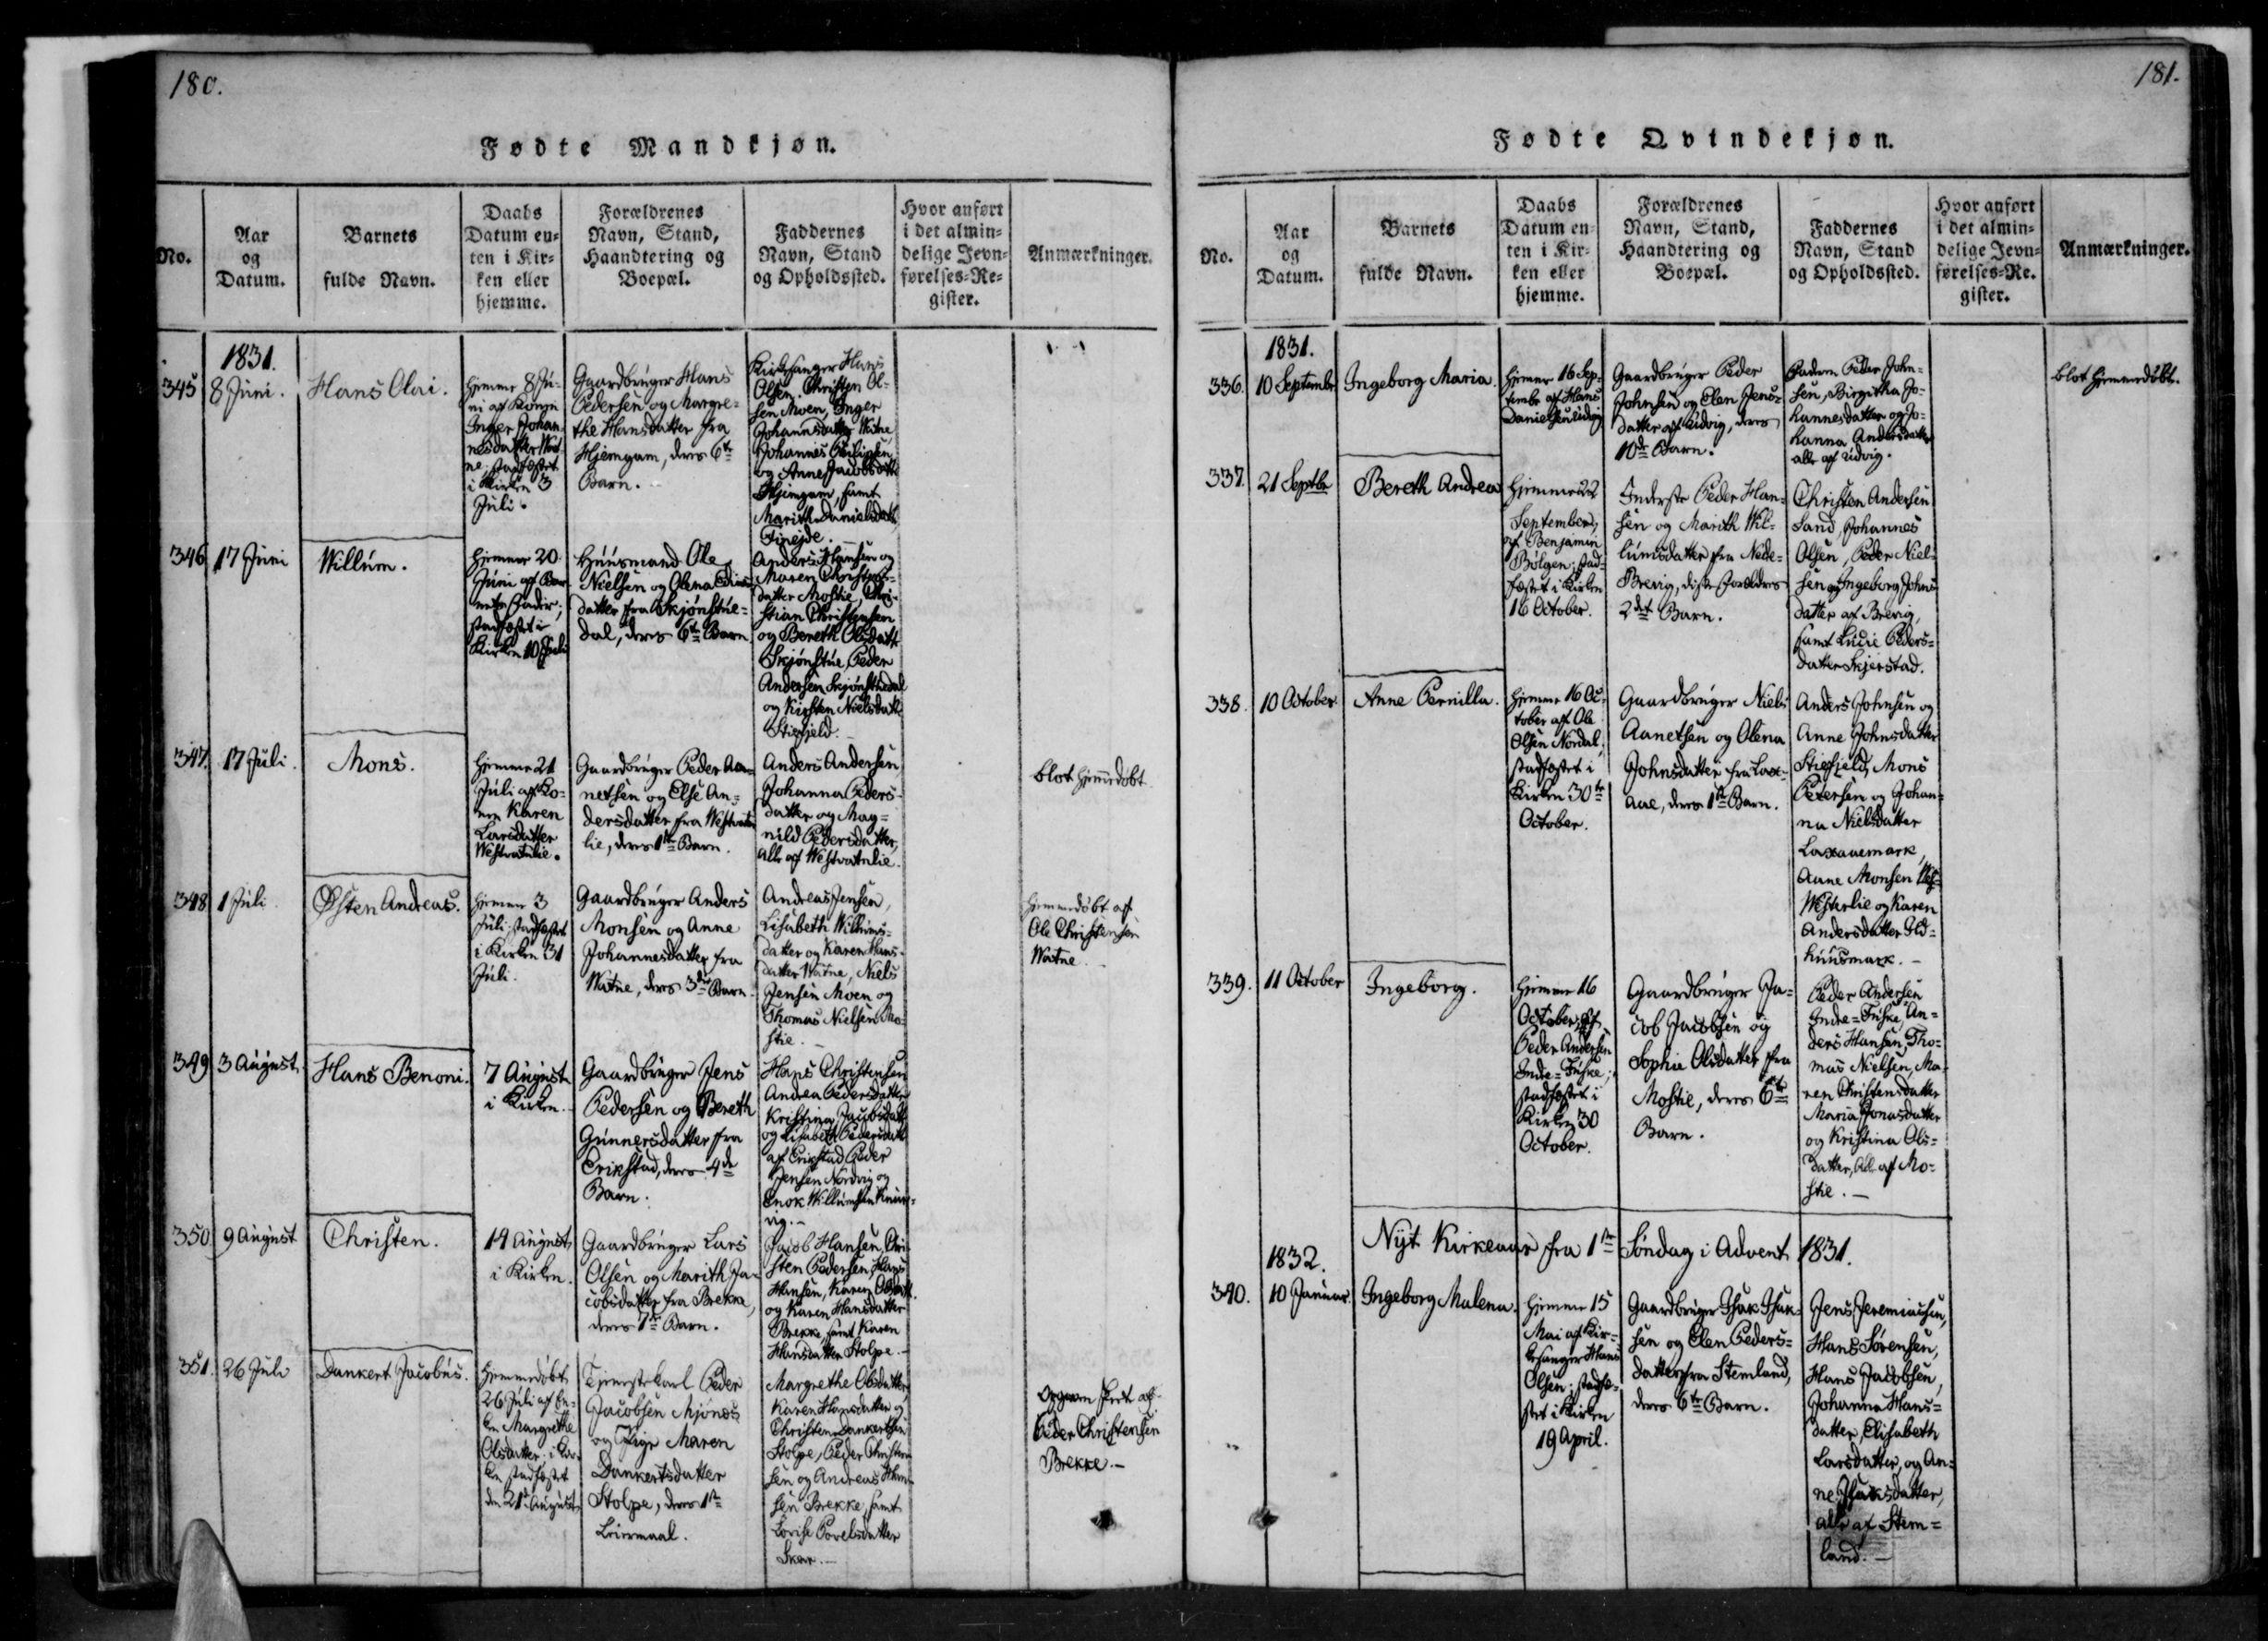 180.
Fødte Mandkjøn.
No.
Aar
og
Datum.
Barnets
fulde Navn.
Daabs
Datum en-
ten i Kir-
ken eller
hjemme.
Forældrenes
Navn, Stand,
Haandtering og
Boepæl.
Faddernes
Navn, Stand
og Opholdssted.
Hvor anført
i det almin-
delige Jevn-
førelses-Re-
gister.
Anmærkninger.
1831.
345
8 Juni.
Hans Olai.
hjemme 8 Ju-
ni af Konen
Inger Johan-
nesdatter Wat-
ne; stadfæstet
i Kirken 3
Juli.
Gaardbruger Hans
Pedersen og Margre-
the Hansdatter fra
Hjemgam, deres 6te
Barn.
Kirkesanger Hans
Olsen, Christen Ol-
sen Moen, Inger
Johannesdatter Watne,
Johannes Philipsen
og Anne Jacobsdatt.
Hjemgam, samt
Marith Danielsdatt.
Finejde.
346
17 Juni
Willum.
hjemme 20
Juni af Bar-
nets Fader;
stadfæstet i
Kirken 10 Juli
Huusmand Ole
Nielsen og Olena
datter fra Skjønstue-
dal, deres 6te Barn
Anders Hansen og
Maren Christens-
datter Mostie, Chri-
stian Christensen
og Bereth Olsdatt.
Skjønstue, Peder
Andersen Skjønstuedal
og Kirsten Nielsdatt.
Stiefjeld.
347.
17 Juli.
Mons.
hjemme 21
Juli af Ko-
nen Karen
Larsdatter
Westvatnlie.
Gaardbruger Peder Aa-
netsen og Else An-
dersdatter fra Westvatn-
lie, deres 1ste Barn.
Anders Andersen,
Johanna Peders-
datter og Mag-
nild Pedersdatter,
alle af Westvatnlie.
blot hjemmedøbt
348
1 Juli
Østen Andreas.
hjemme 3
Juli; stadfæstet
i Kirken 31
Juli.
Gaardbruger Anders
Monsen og Anne
Johannesdatter fra
Watne, deres 3die Barn.
Andreas Jensen,
Lisabeth Willums-
datter og Karen Hans-
datter Watne, Niels
Jensen Moen og
Thomas Nielsen Mo-
stie.
hjemmedøbt af
Ole Christensen
Watne.
349
3 August.
Hans Benoni.
7 August
i Kirken.
Gaardbruger Jens
Pedersen og Bereth
Gunnersdatter fra
Erikstad, deres 4de
Barn.
Hans Christensen
Andrea Pedersdatter
Kristina Jacobsdatt.
og Lisabeth Pedersdatt.
af Erikstad, Peder
Jensen Nordvig og
Enok Willumsen
vig.
350
9 August
Christen.
14 August
i Kirken.
Gaardbruger Lars
Olsen og Marith Ja-
cobsdatter fra Brekke,
deres 7de Barn.
Jacob Hansen, Chri-
sten Pedersen, Hans
Hansen, Karen Olsdatt.
og Karen Hansdatter
Brekke, samt Karen
Hansdatter Stolpe.
351.
26 Juli
Dankert Jacobus.
hjemmedøbt
26 Juli af En-
ken Margrethe
Olsdatter; i Kir-
ken stadfæstet
den 21de August
Tjenestekarl Peder
Jacobsen Mjønes
og Pige Maren
Dankertsdatter
Stolpe, deres 1ste
Leiermaal.
Margrethe Olsdatter,
Karen Hansdatter og
Christen Dankertsen
Stolpe, Peder Christen-
sen og Andreas Han-
sen Brekke, samt
Lovise Povelsdatter
Skar.
af
Peder Christensen
Brekke.
181.
Fødte Qvindekjøn.
No.
Aar
og
Datum.
Barnets
fulde Navn.
Daabs
Datum en-
ten i Kir-
ken eller
hjemme.
Forældrenes
Navn, Stand,
Haandtering og
Boepæl.
Faddernes
Navn, Stand
og Opholdssted.
Hvor anført
i det almin-
delige Jevn-
førelses-Re-
gister.
Anmærkninger.
1831.
336.
10 Septembr
Ingeborg Maria.
hjemme 16 Sep-
tembr af Hans
Danielsen Udvig
Gaardbruger Peder
Johnsen og Elen Jens-
datter af Udvig, deres
10de Barn.
Faderen Peder John-
sen, Birgitha Jo-
hannesdatter og Jo-
hanna Andersdatter
alle af Udvig.
blot hjemmedøbt.
337.
21 Septbr
Bereth Andrea
hjemme 22
September
af Benjamin
Bølgen; stad-
fæstet i Kirken
16 October.
Inderste Peder Han-
sen og Marith Wil-
lumsdatter fra Nede-
Brevig, disse Forældres
2det Barn.
Christen Andersen
Sand, Johannes
Olsen, Peder Niel-
sen og Ingeborg Johns-
datter af Brevig,
samt Lucie Peders-
datter Skjerstad.
338.
10 October.
Anne Pernilla.
hjemme 16 Oc-
tober af Ole
Olsen Nordal,
stadfæstet i
Kirken 30te
October.
Gaardbruger Niels
Aanetsen og Olena
Johnsdatter fra Lax-
aae, deres 1ste Barn.
Anders Johnsen og
Anne Johnsdatter
Stiefjeld, Mons
Petersen og Johan-
na Nielsdatter
Laxaaemark,
Aane Monsen
Westerlie og Karen
Andersdatter Ild-
huusmark.
339.
11 October
Ingeborg.
hjemme 16
October, af
Peder Andersen
Indre-Fuske;
stadfæstet i
Kirken 30
October.
Gaardbruger Ja-
cob Jacobsen og
Sophie Olsdatter fra
Mostie, deres 6te
Barn.
Peder Andersen
Indre-Fuske, An-
ders Hansen, Tho-
mas Nielsen, Ma-
ren Christensdatter
Maria Jonasdatter
og Kristina Ols-
datter, Alle af Mo-
stie.
Nyt Kirkeaar fra 1ste Søndag i Advent 1831.
1832.
340.
10 Januar.
Ingeborg Malena.
hjemme 15
Mai af Kir-
kesanger Hans
Olsen; stadfæ-
stet i Kirken
19 April.
Gaardbruger Isak Isak-
sen og Elen Peders-
datter fra Stemland,
deres 6te Barn.
Jens Jeremiassen,
Hans Sørensen,
Hans Jacobsen,
Johanna Hans-
datter, Elisabeth
Larsdatter, og An-
ne Isaksdatter,
alle af Stem-
land.